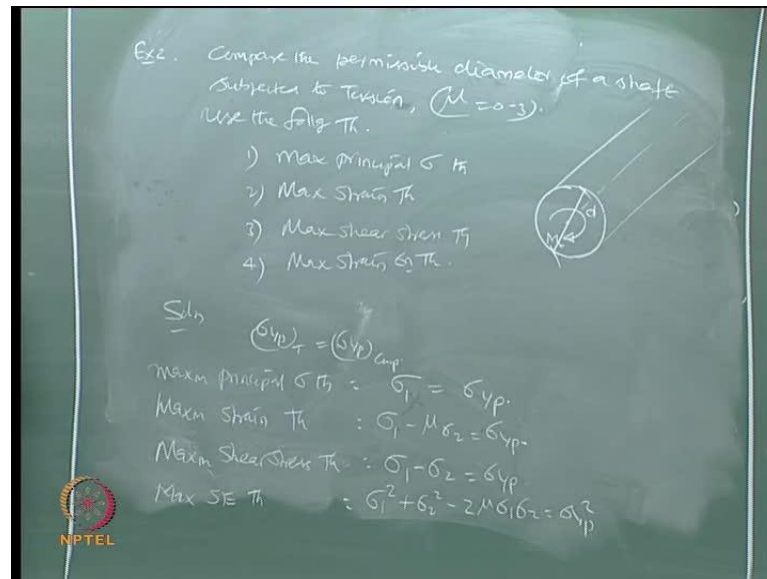 Ex2. Compare the permissible diameter of a shaft
subjected to Torsion, (μ = 0.3).
Use the follg Th.
1) Max principal σ th
2) Max Strain Th
3) Max shear stress Th
4) Max Strain En Th.
d
Mt
Soln
(σyp)T = (σyp)Comp.
Maxm principal σ th : σ1 = σyp.
Maxm Strain Th : σ1 - μσ2 = σyp.
Maxm Shear Stress Th : σ1 - σ2 = σyp.
Max SE Th : σ1² + σ2² - 2μσ1σ2 = σyp²
NPTEL